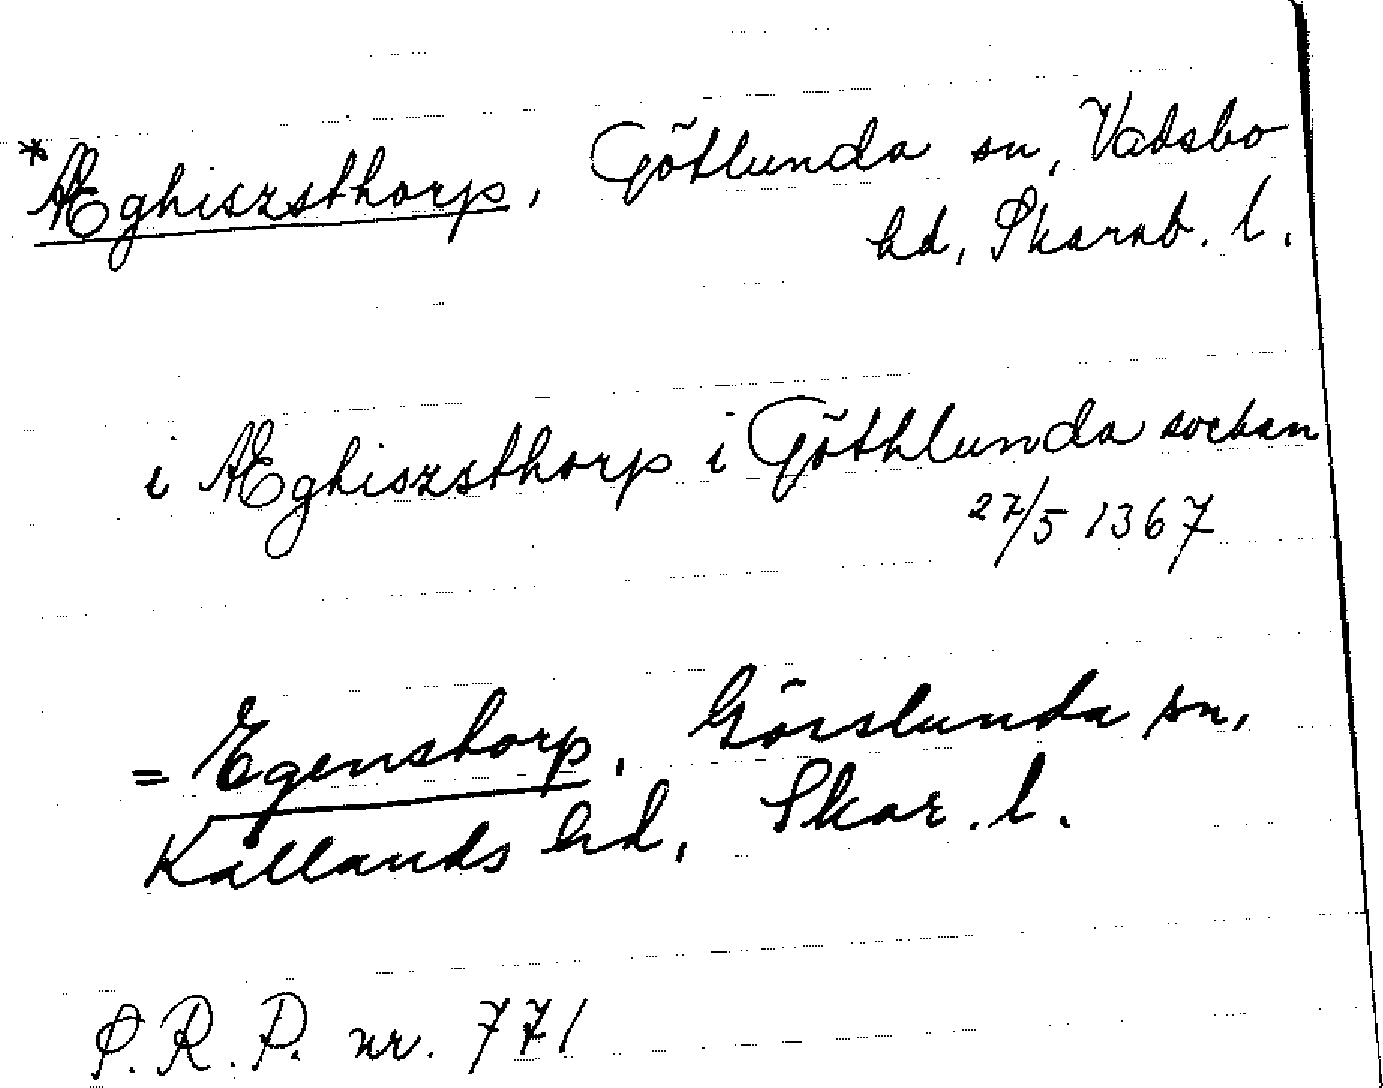 *Æghiszsthorp, Götlunda sn, Vadsbo
hd, Skarab. l.
i Æghiszsthorp i Göthlunda sockan
27/5 1367
= Egenstorp, Görslunda sn,
Kållands hd, Skar. l.
P.R.P. nr. 771